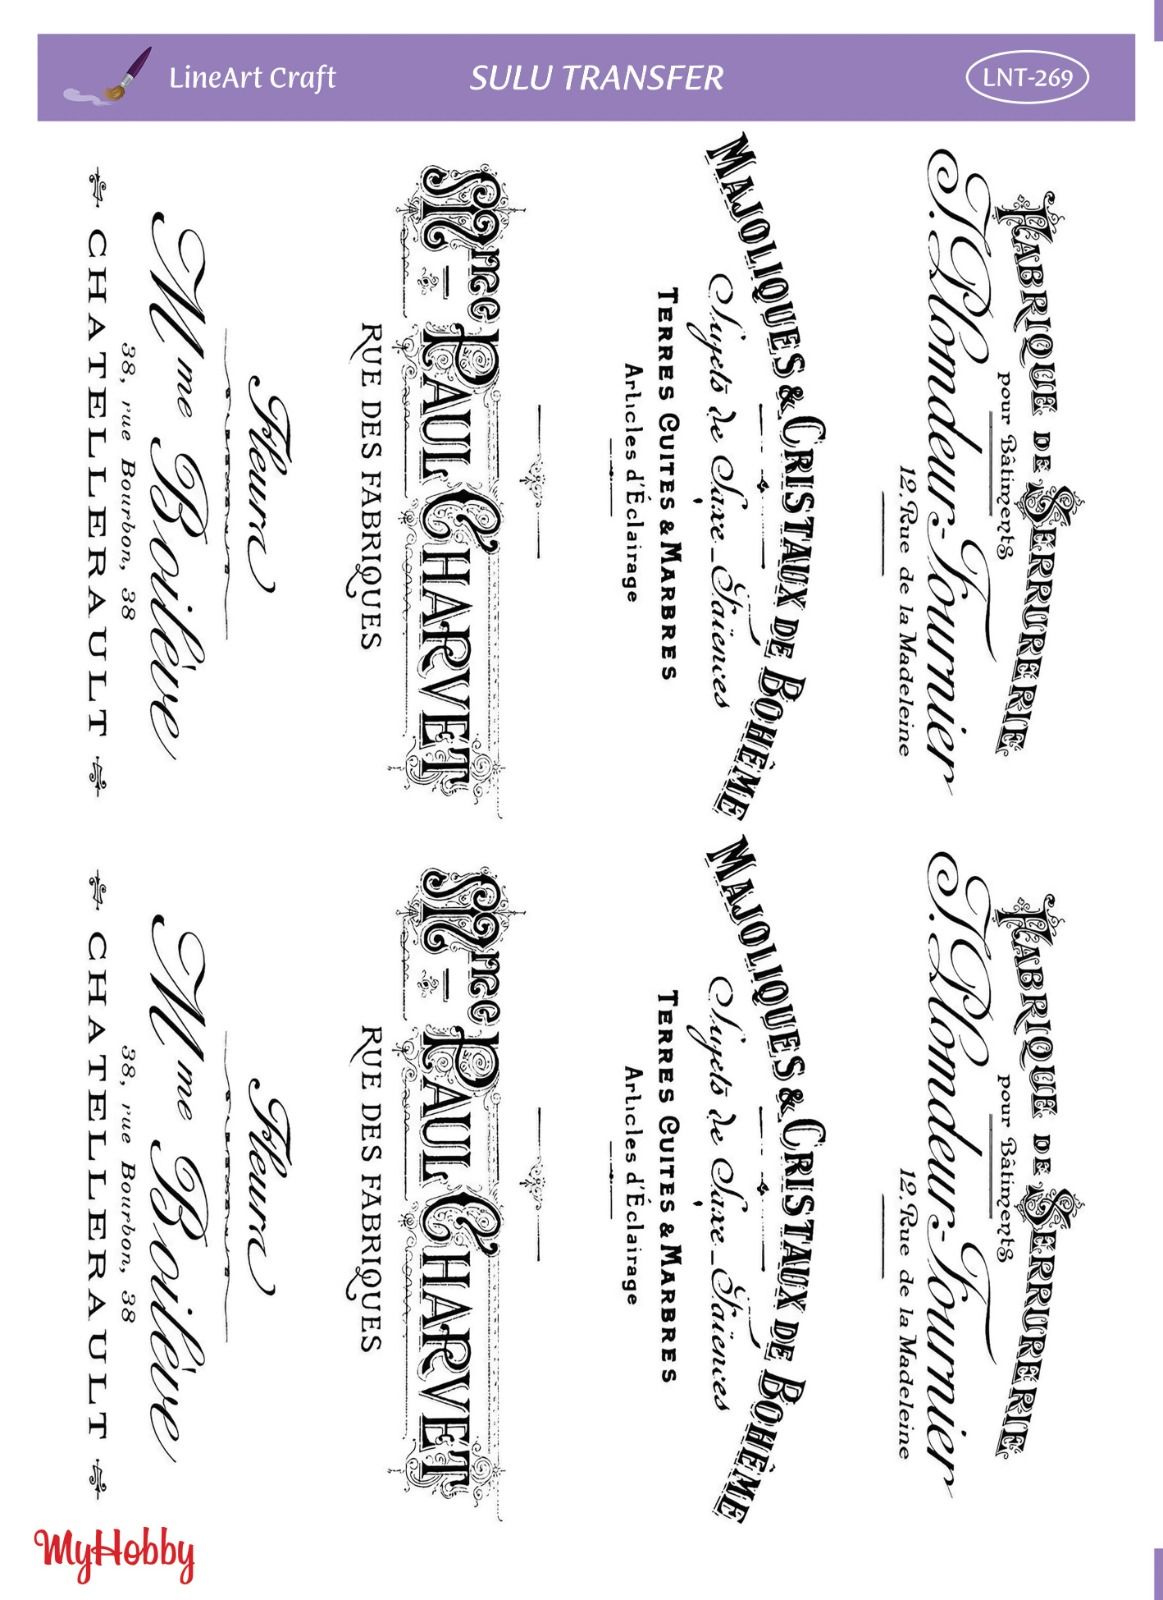 LineArt Craft
SULU TRANSFER
LNT-269
FABRIQUE DE SERRURERIE
pour Bâtiments
J. Plomdeur-Fournier
12. Rue de la Madeleine
MAJOLIQUES & CRISTAUX DE BOHÈME
Sujets de Saxe _ Faïences
TERRES CUITES & MARBRES
Articles d'Éclairage
Mon PAUL CHARVET
RUE DES FABRIQUES
Fleurs
Mme Boilève
38, rue Bourbon, 38
CHATELLERAULT
FABRIQUE DE SERRURERIE
pour Bâtiments
J. Plomdeur-Fournier
12. Rue de la Madeleine
MAJOLIQUES & CRISTAUX DE BOHÈME
Sujets de Saxe _ Faïences
TERRES CUITES & MARBRES
Articles d'Éclairage
Mon PAUL CHARVET
RUE DES FABRIQUES
Fleurs
Mme Boilève
38, rue Bourbon, 38
CHATELLERAULT
MyHobby